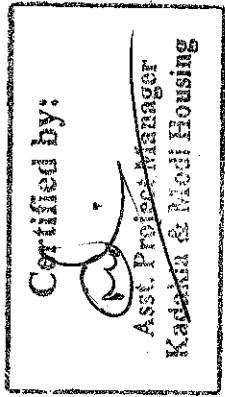 Certified by:
Asst. Project Manager
Kadakia & Modi Housing